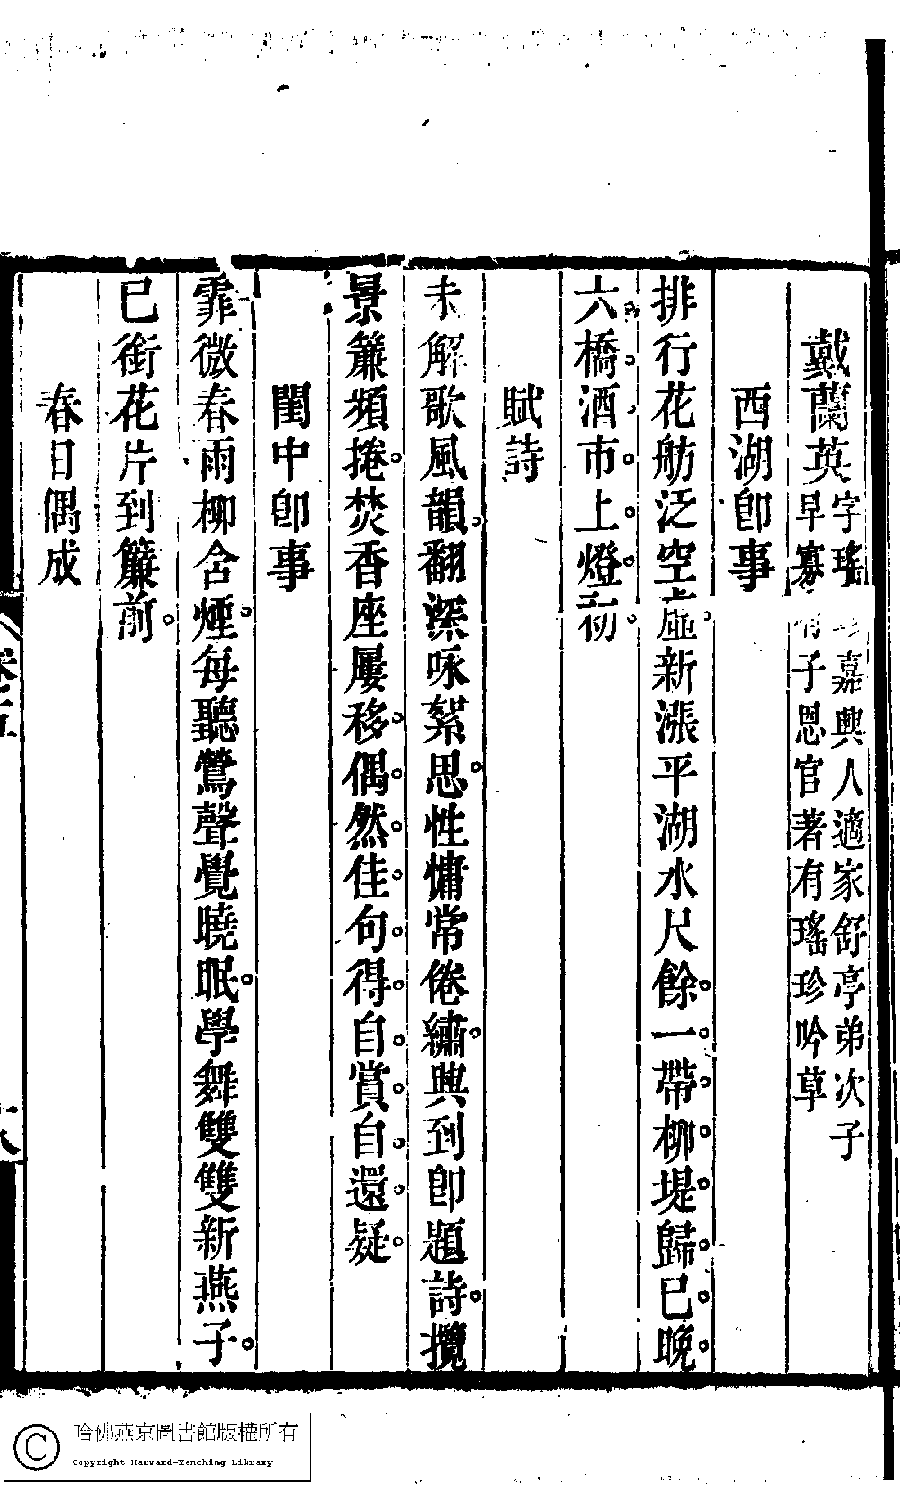 戴蘭英字瑤珍嘉興人適家舒亭弟次子
早寡有子恩官著有瑤珍吟草
西湖卽事
排行花舫泛空虛。新漲平湖水尺餘。一帶柳堤歸已晚。
六橋酒市上燈初。
賦詩
未解歌風韻。翻深咏絮思。性慵常倦繡。興到卽題詩。攬
景簾頻捲。焚香座屢移。偶然佳句得。自賞自還疑。
閨中卽事
霏微春雨柳含煙。每聽鶯聲覺曉眠。學舞雙雙新燕子。
已銜花片到簾前。
春日偶成
卷五
十八
哈佛燕京圖書館版權所有
Copyright Harvard-Yenching Library